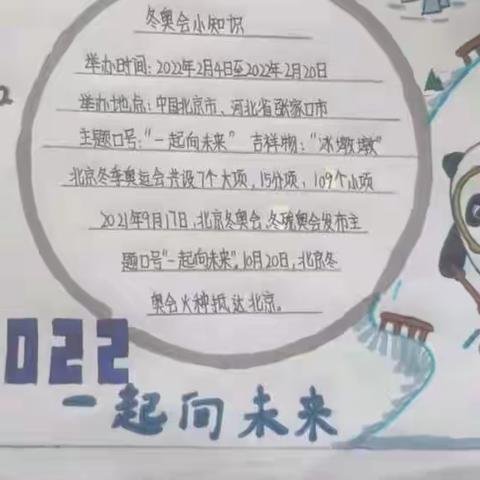 冬奥会小知识
举办时间：2022年2月4日至2022年2月20日
举办地点：中国北京市、河北省张家口市
主题口号："一起向未来" 吉祥物："冰墩墩"
北京冬季奥运会共设7个大项，15分项，109个小项
2021年9月17日，北京冬奥会、冬残奥会发布主
题口号"一起向未来"。10月20日，北京冬
奥会火种抵达北京。
2022
一起向未来